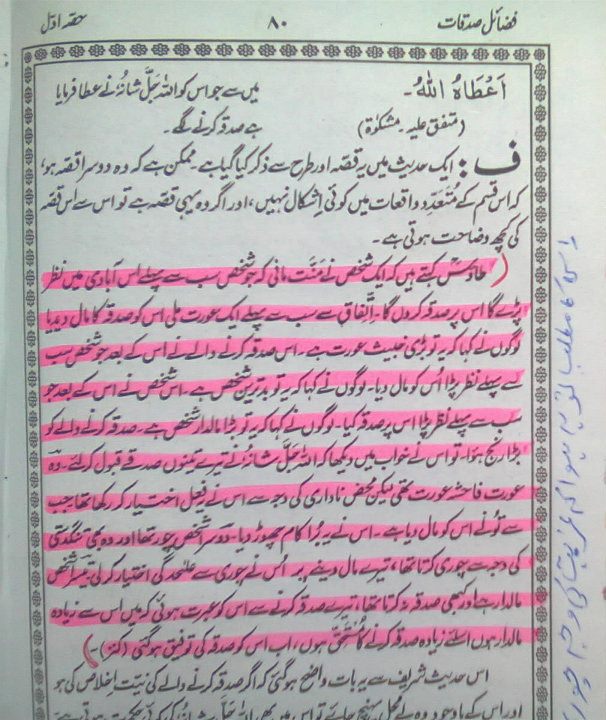 فضائل صدقات ۸۰ حصہ اوّل
اَعْطَاہُ اللّٰہُ۔ میں سے جو اس کو اللہ جَلَّ شانُہٗ نے عطا فرمایا
(متفق علیہ۔ مشکوٰۃ) ہے صدقہ کرنے لگے۔
ف: ایک حدیث میں یہ قصہ اور طرح سے ذکر کیا گیا ہے۔ ممکن ہے کہ وہ دوسرا قصہ ہو،
کہ اس قسم کے مُتَعَدِّد واقعات میں کوئی اِشکال نہیں، اور اگر وہ یہی قصہ ہے تو اس سے اس قصہ
کی کچھ وضاحت ہوتی ہے۔
طاؤسؒ کہتے ہیں کہ ایک شخص نے مَنّت مانی کہ جو شخص سب سے پہلے اس آبادی میں نظر
پڑے گا اس پر صدقہ کروں گا۔ اِتّفاق سے سب سے پہلے ایک عورت ملی اس کو صدقہ کا مال دیدیا
لوگوں نے کہا کہ یہ تو بڑی خبیث عورت ہے۔ اس صدقہ کرنے والے نے اس کے بعد جو شخص سب
سے پہلے نظر پڑا اُس کو مال دیا۔ لوگوں نے کہا کہ یہ تو بدترین شخص ہے۔ اس شخص نے اس کے بعد جو
سب سے پہلے نظر پڑا اس پر صدقہ کیا۔ لوگوں نے کہا کہ یہ تو بڑا مالدار شخص ہے۔ صدقہ کرنے والے کو
بڑا رنج ہوا، تو اس نے خواب میں دیکھا کہ اللہ جَلَّ شانُہٗ نے تیرے تینوں صدقے قبول کر لئے۔ وہ
عورت فاحشہ عورت تھی لیکن محض ناداری کی وجہ سے اس نے یہ فعل اختیار کر رکھا تھا، جب
سے تُو نے اس کو مال دیا ہے۔ اس نے یہ بُرا کام چھوڑ دیا۔ دوسرا شخص چور تھا اور وہ بھی تنگدستی
کی وجہ سے چوری کرتا تھا، تیرے مال دینے پر اُس نے چوری سے علیٰحدگی اختیار کر لی، تیسرا شخص
مالدار ہے اور کبھی صدقہ نہ کرتا تھا، تیرے صدقہ کرنے سے اس کو عبرت ہوئی کہ میں اس سے زیادہ
مالدار ہوں اسلئے زیادہ صدقہ کرنے کا مُستحق ہوں، اب اس کو صدقہ کی توفیق ہو گئی (کنز)۔
اس حدیث شریف سے یہ بات واضح ہو گئی کہ اگر صدقہ کرنے والے کی نیت اِخلاص کی ہو
اور اس کے باوجود وہ بے محل پہنچ جائے تو اس میں بھی اللہ جَلَّ شانُہٗ کی کوئی حکمت ہوتی ہے۔
اس کا مطلب تو یہ ہوا کہ غربت کی وجہ چور